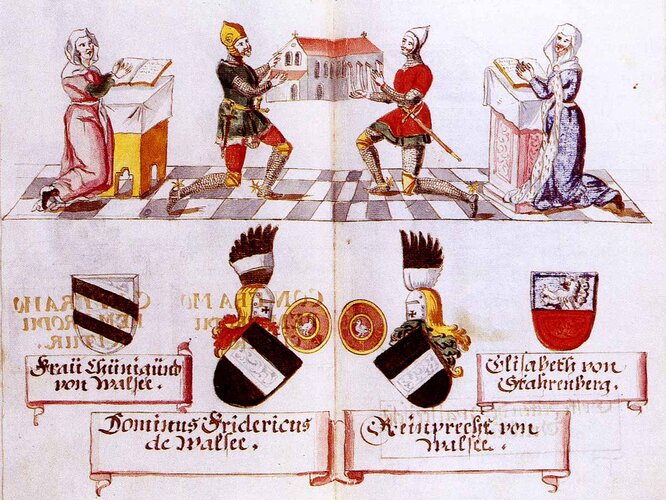 Fraü Chünigünd
von Walsee.
Dominus Fridericus
de Walsee.
Reinprecht von
Walsee.
Elisabeth von
Stahrenberg.